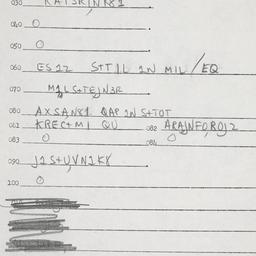 030 KAISRINN81
040 0
050 0
060 ES12 STTIL IN MIL/EQ
070 M1LSTEJN3R
080 AXSAN81 QAP IN S+TOT
081 KREC+MI QU 082 ARAJNFOROJ2
083 0 084 0
090 J1S+UVN1K8
100 0